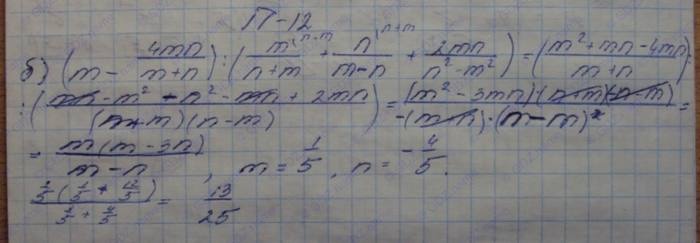 П-12
б) (m - 4mn/(m+n)) : (m^(n-m)/(n+m) + n^(n+m)/(m-n) + 2mn/(n²-m²)) = ((m²+mn-4mn)/(m+n)) :
: ((mn-m²-n²-mn+2mn)/((n+m)(n-m))) = (m²-3mn)·(n+m)(n-m)/(-(m+n)·(n-m)²) =
= m(m-3n)/(m-n), m = 1/5, n = -4/5.
(1/5(1/5+12/5))/(1/5+4/5) = 13/25